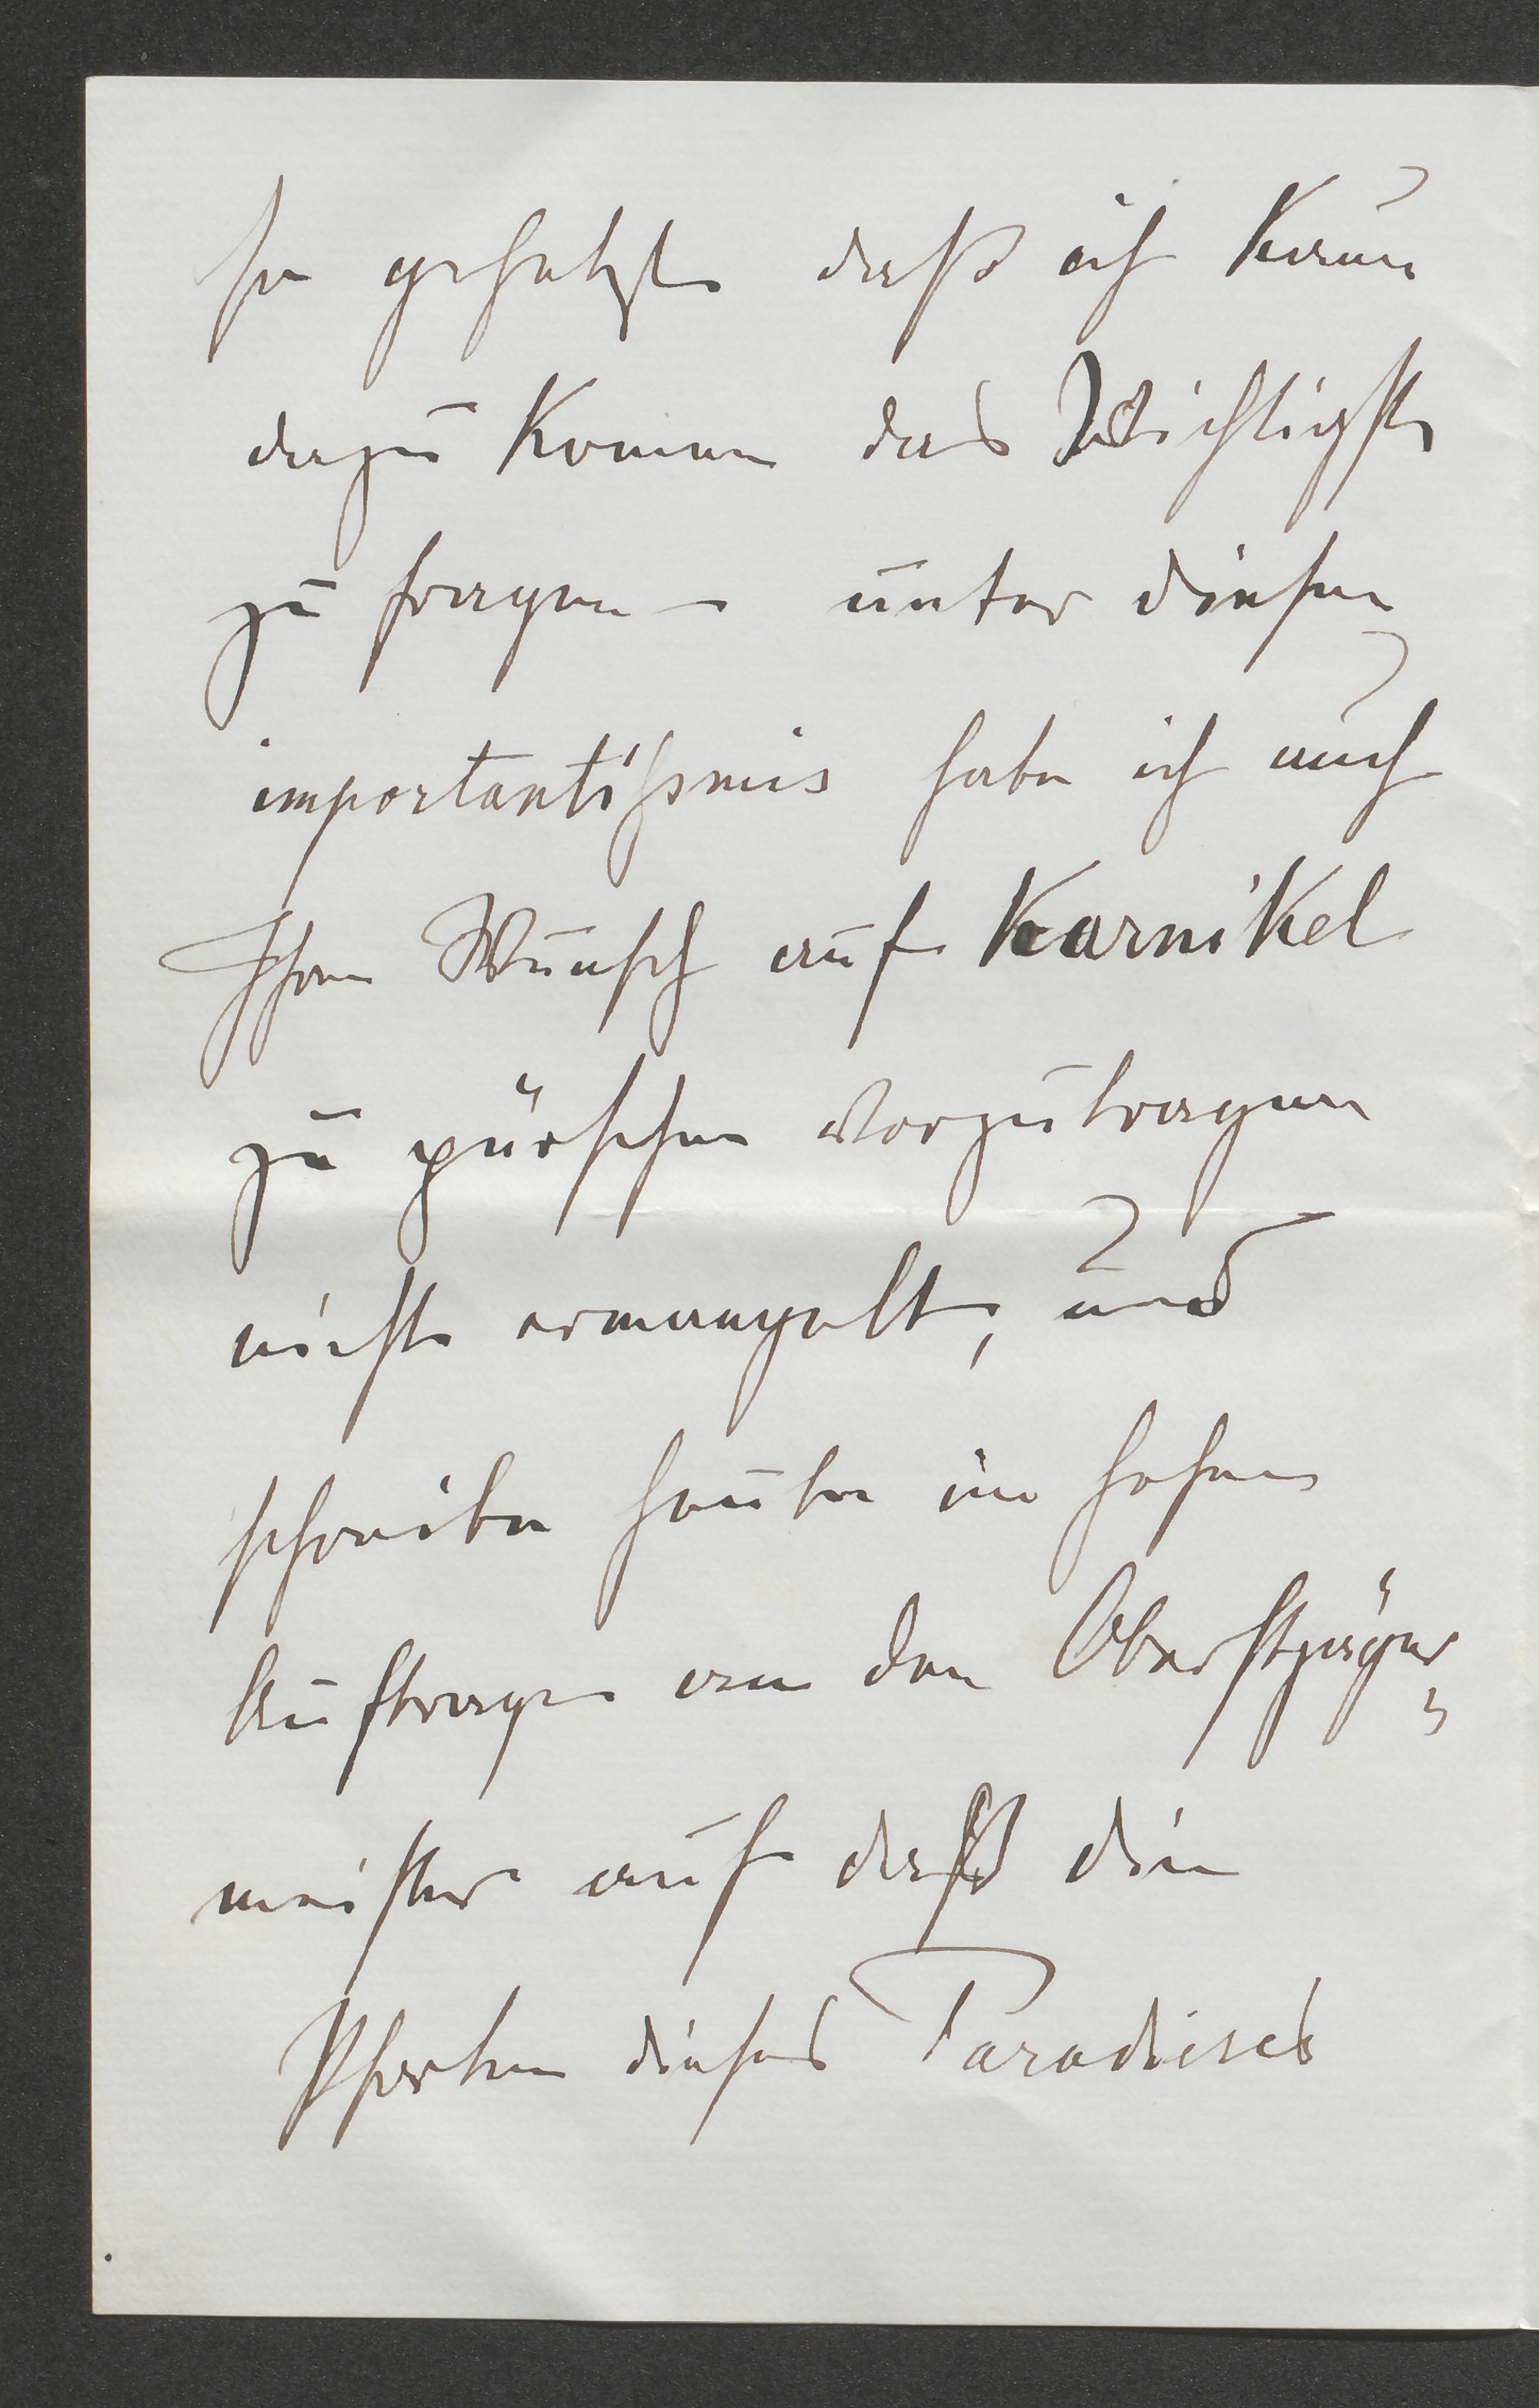 so gehetzt daß ich kaum
dazu komme das Wichtigste
zu fragen – unter diesen
importantißmis habe ich auch
Ihren Wunsch auf Karnikel
zu pürschen vorzutragen
nicht ermangelt, und
schreibe heute im hohen
Auftrage an den Oberstjäger„
meister auf daß die
Pforten dieses Paradieses